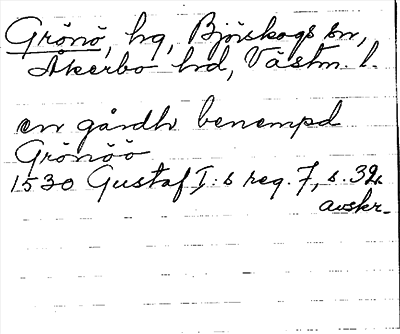 Grönö, hg, Björskogs sn,
Åkerbo hd, Västm. l.
en gårdh benempd
Grönöö
1530 Gustaf I:s reg. 7, s. 32.
avskr.